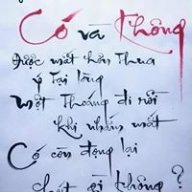 Có và Không
Được mất hơn thua
ý tại lãng
một Thoáng đi rồi
khi nhắm mắt
Có còn đọng lại
chút gì không ?